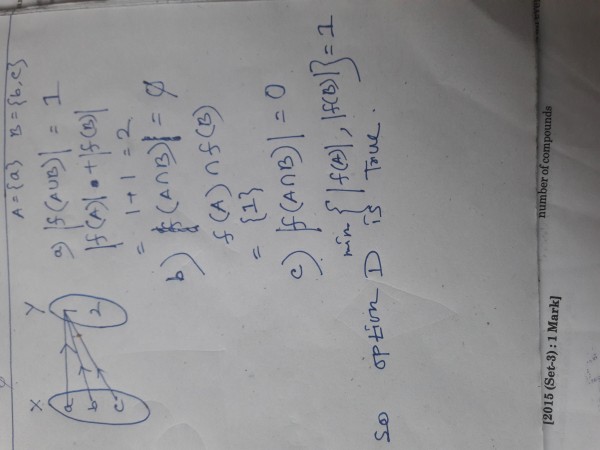 A = {a}  B = {b,c}
X  Y
a  1
b  2
c
a) |f(A∪B)| = 1
|f(A)| + |f(B)|
= 1+1 = 2
b) f(A∩B) = ∅
f(A) ∩ f(B)
= {1}
c) |f(A∩B)| = 0
min{|f(A)|, |f(B)|} = 1
So option D is True.
number of compounds
[2015 (Set-3) : 1 Mark]